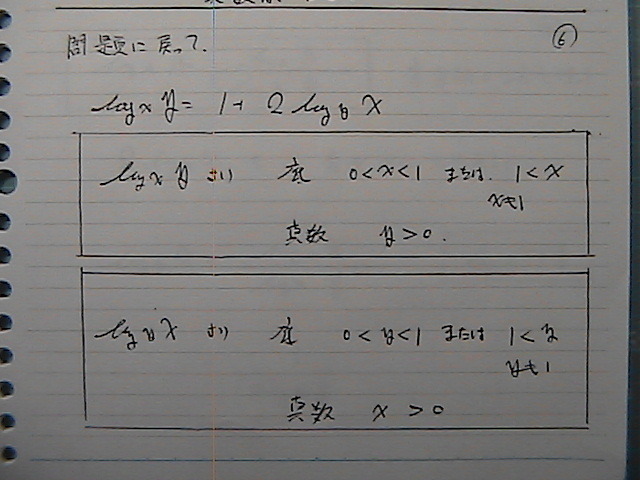 問題に戻って. ⑥
log x y = 1 + 2 log y x
log x y より 底 0 < x < 1 または 1 < x
x ≠ 1
真数 y > 0.
log y x より 底 0 < y < 1 または 1 < y
y ≠ 1
真数 x > 0